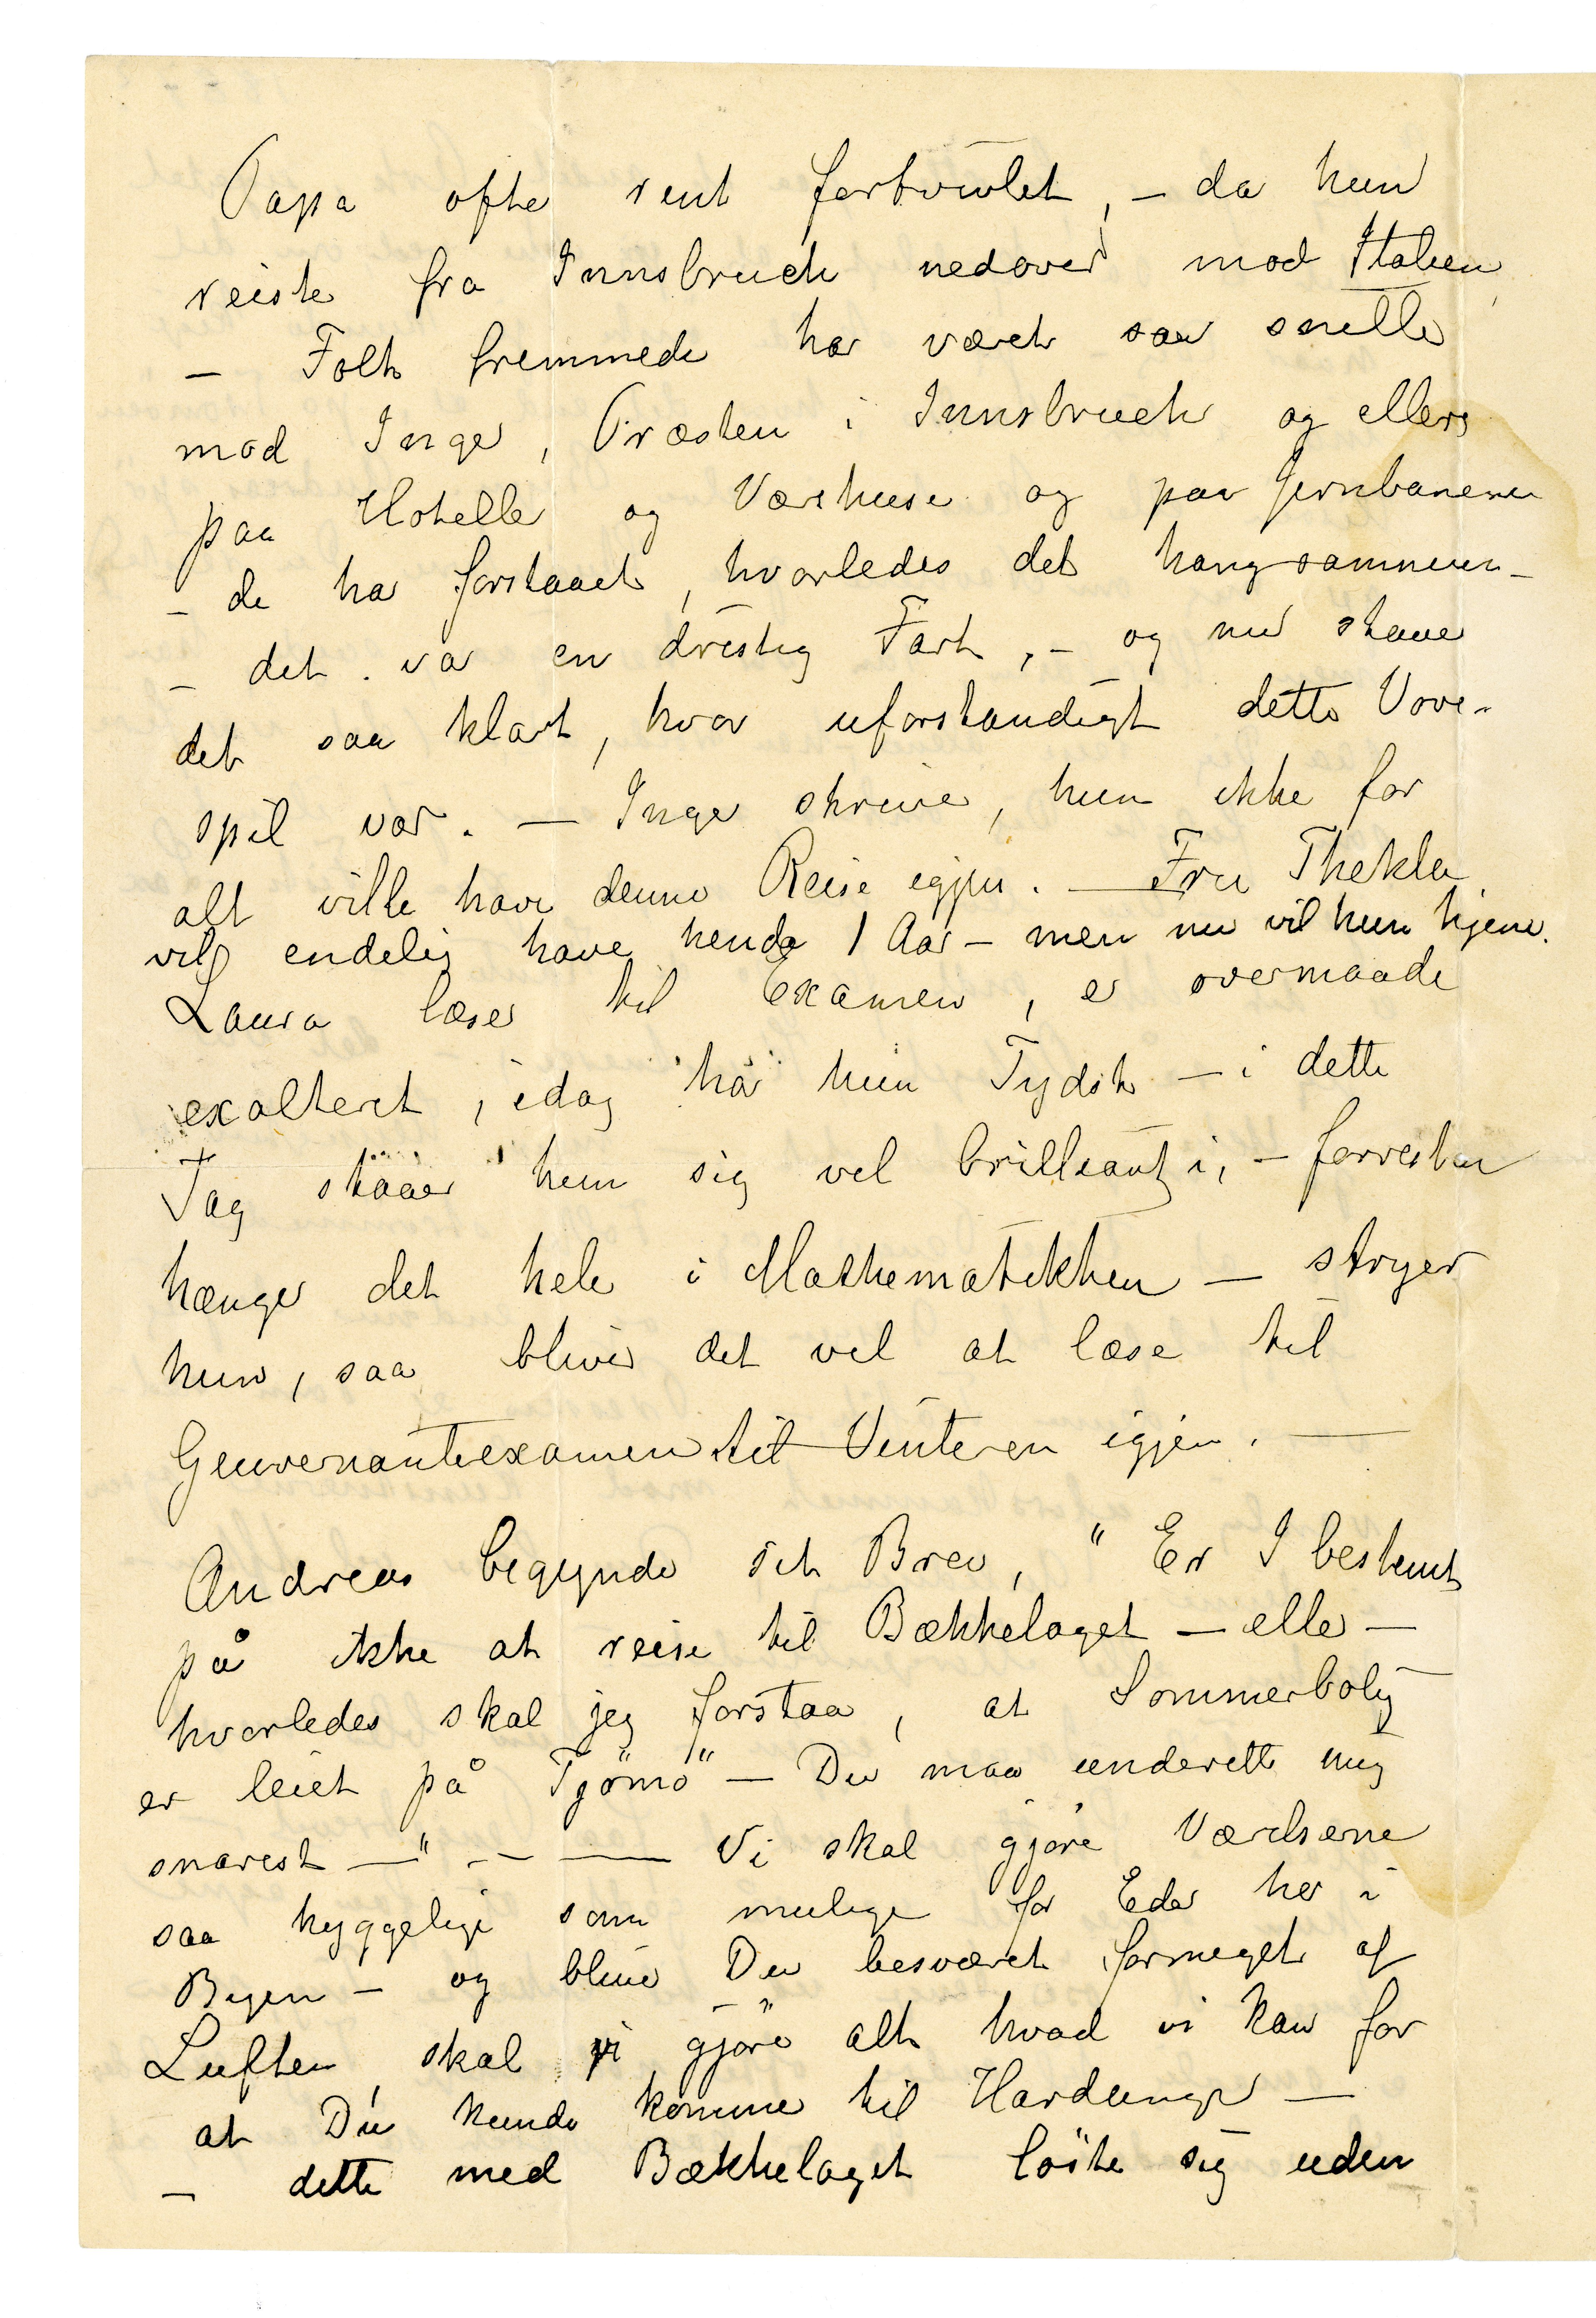 Papa ofte rent fortvivlet, – da hun
reiste fra Innsbruck nedover mod Italien,
– Folk fremmede har været saa snille
mod Inger, Præsten i Innsbruck og ellers
paa Hoteller og Værthuse og paa Jernbanerne
– de har forstaaet, hvorledes det hang sammen –
– det var en dristig Fart, – og nu staaer
det saa klart, hvor uforstandigt dette Vove-
spil var. – Inger skriver, hun ikke for
alt ville have denne Reise igjen. – Fru Thekla
vil endelig have hende 1 Aar – men nu vil hun hjem.
Laura læser til Examen, er overmaade
exalteret, idag har hun Tydsk – i dette
Fag staaer hun sig vel brillsant i, – forresten
hænger det hele i Mathematikken – stryer
hun, saa bliver det vel at læse til
Guvernanteexamen til Vinteren igjen. —
Andreas begynder sit Brev, "Er I bestemt
på ikke at reise til Bækkelaget – eller –
hvorledes skal jeg forstaa, at Sommerbolig
er leiet på Tjömö" – Du maa underette mig
snarest —" – — Vi skal gjøre Værelserne
saa hyggelige som mulige for Eder her i
Byen – og bliver Du besværet formeget af
Luften, skal vi gjöre alt hvad vi kan for
at Du kunde komme til Hardanger –
– dette med Bækkelaget löste sig uden